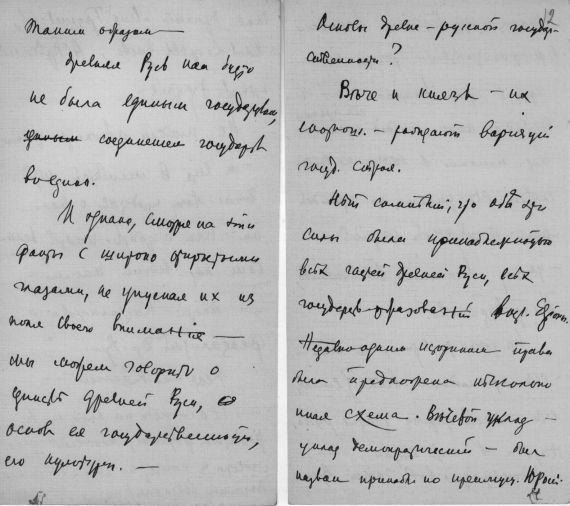 Таким образом —
древняя Русь как будто
не была единым государством,
единым соединением государств
воедино.
И однако, смотря на эти
факты с широко открытыми
глазами, не упуская их из
поля своего внимания —
мы можем говорить о
единстве древней Руси, о
основ ея государственности,
его культуры. —
12
Основы древне-русской государ-
ственности?
Вече и князь — их
соотнош. — рождают вариации
госуд. строя.
Нет сомнения, что обе эти
силы были принадлежностью
всех частей древней Руси, всех
государств
Недавно одним историком права
была предложена несколько
иная схема. Вечевой уклад —
уклад демократический — был
назван